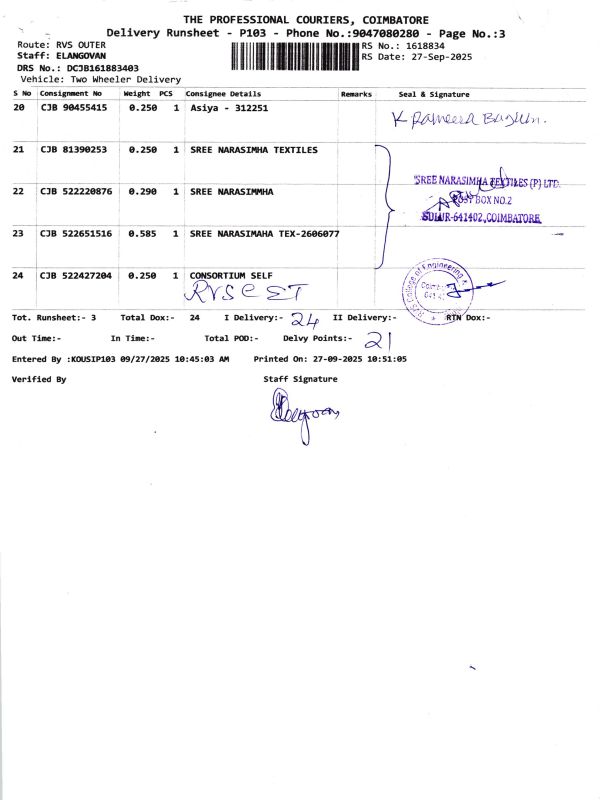 THE PROFESSIONAL COURIERS, COIMBATORE
Delivery Runsheet - P103 - Phone No.:9047080280 - Page No.:3
Route: RVS OUTER RS No.: 1618834
Staff: ELANGOVAN RS Date: 27-Sep-2025
DRS No.: DCJB161883403
Vehicle: Two Wheeler Delivery
S No Consignment No Weight PCS Consignee Details Remarks Seal & Signature
20 CJB 90455415 0.250 1 Asiya - 312251
K Rameesa Begum.
21 CJB 81390253 0.250 1 SREE NARASIMHA TEXTILES
SREE NARASIMHA TEXTILES (P) LTD.
22 CJB 522220876 0.290 1 SREE NARASIMMHA
POST BOX NO.2
SULUR-641402, COIMBATORE
23 CJB 522651516 0.585 1 SREE NARASIMAHA TEX-2606077
24 CJB 522427204 0.250 1 CONSORTIUM SELF
RVS CET
College of Engineering
Tot. Runsheet:- 3 Total Dox:- 24 I Delivery:- 24 II Delivery:- RTN Dox:-
Out Time:- In Time:- Total POD:- Delvy Points:- 21
Entered By :KOUSIP103 09/27/2025 10:45:03 AM Printed On: 27-09-2025 10:51:05
Verified By Staff Signature